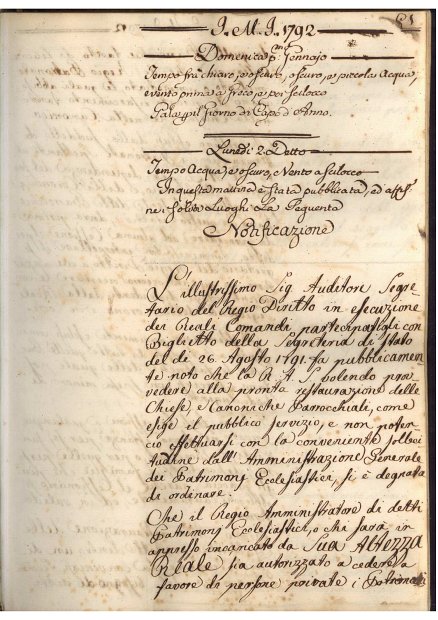 J. M. J. 1792
Domenica p.mo Gennajo
Tempo fra chiaro, ed oscuro, oscuro, e piccola Acqua,
e vento prima a Greco, e poi Scilocco
Giorno di Capo d'Anno.
Lunedì 2. Detto
Tempo Acqua, e oscuro, Vento a Scilocco
In questa mattina è stata pubblicata, ed affissa
ne i soliti Luoghi La Seguente
Notificazione
L'illustrissimo Sig. Auditore Segre-
tario del Regio Diritto in esecuzione
dei Reali Comandi partecipatigli con
Biglietto della Segreteria di Stato
del dì 26. Agosto 1791. fa pubblicamen-
te noto che la R. A. S. volendo prov-
vedere alla pronta restaurazione delle
Chiese, e Canoniche Parrocchiali, come
esige il pubblico servizio, e non poten-
do effettuarsi con la conveniente solleci-
tudine dall'Amministrazione Generale
dei Patrimonj Ecclesiastici, si è degnata
di ordinare.
Che il Regio Amministratore di detti
Patrimonj Ecclesiastici, o chi sarà in
appresso incaricato da Sua Altezza
Reale sia autorizzato a cedere a
favore di persone private i Patrimonj